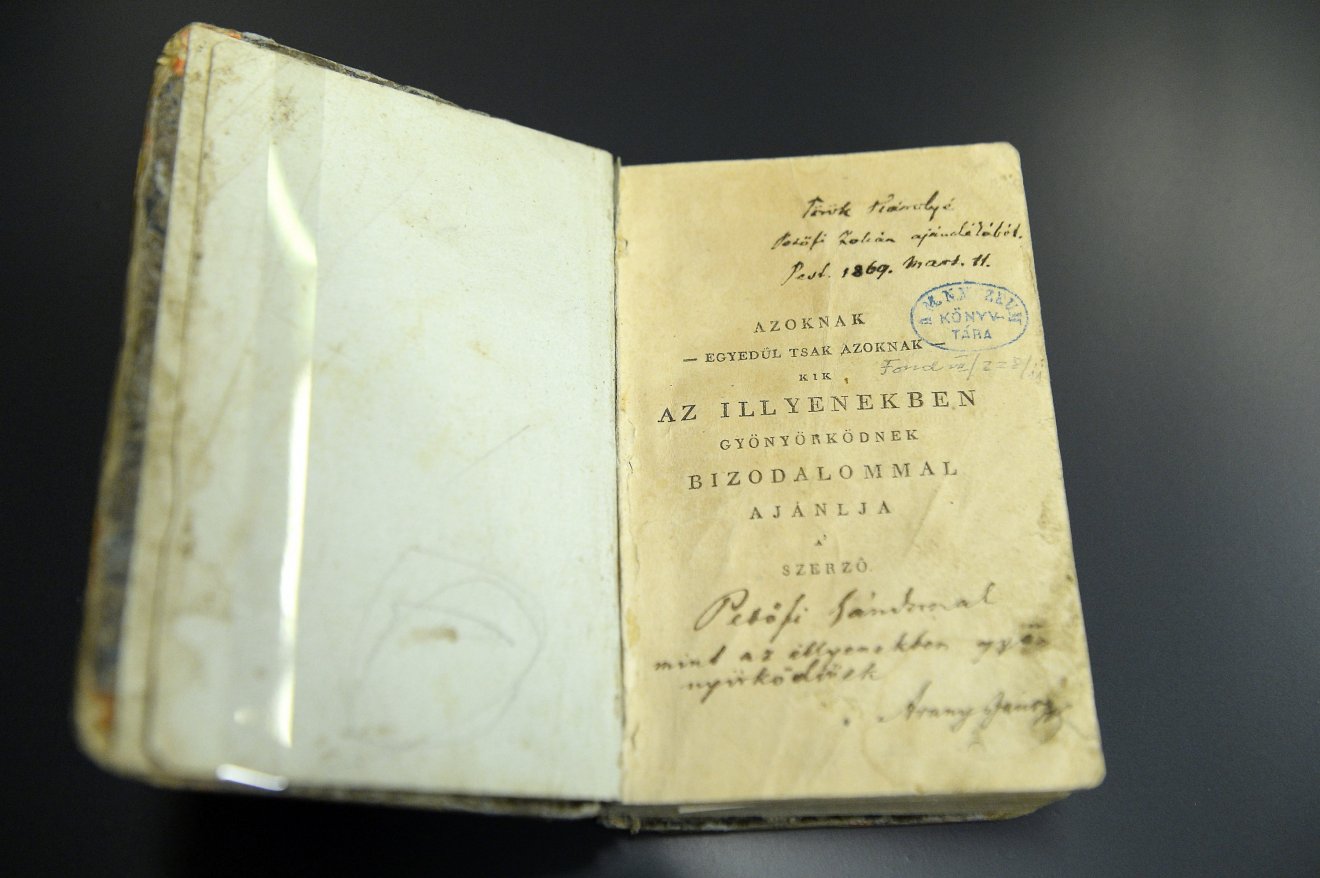 Török Károlyé
Petőfi Zoltán ajándékából.
Pest. 1869. Mart. 11.
KÖNYV-
TÁRA
AZOKNAK
— EGYEDŰL TSAK AZOKNAK —
KIK
Fond
AZ ILLYENEKBEN
GYÖNYÖRKÖDNEK
BIZODALOMMAL
AJÁNLJA
A'
SZERZŐ.
Petőfi Sándornak
mint az illyenekben gyö
nyörködőnek
Arany János